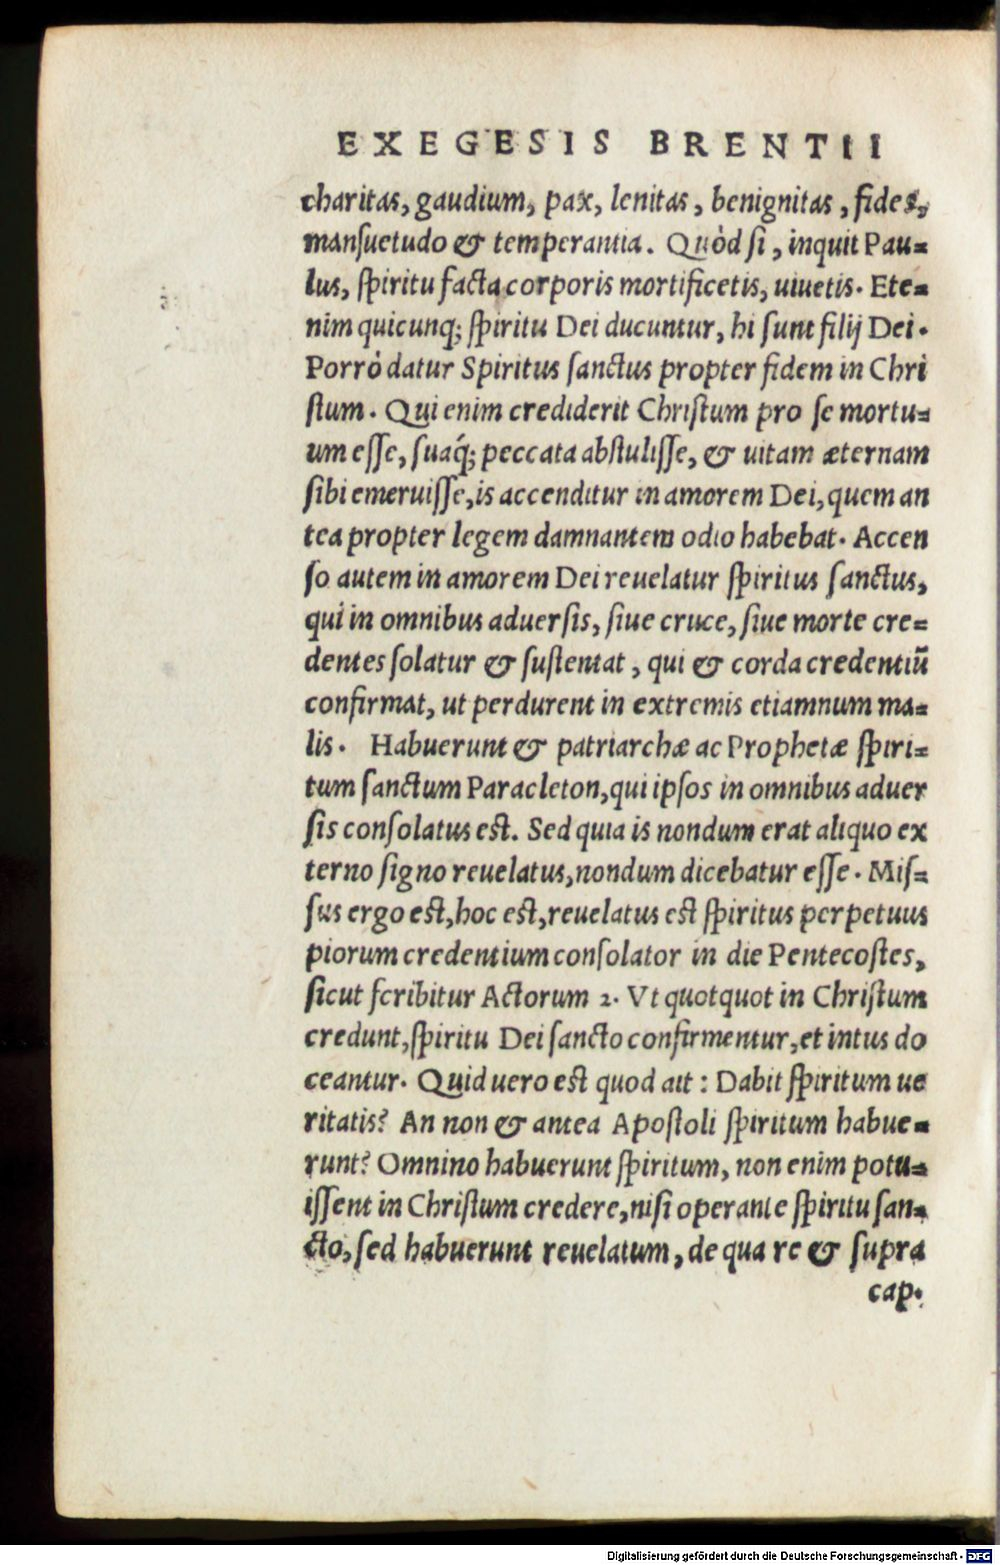 EXEGESIS BRENTII
charitas, gaudium, pax, lenitas, benignitas, fides,
manſuetudo & temperantia. Quòd ſi, inquit Pau=
lus, ſpiritu facta corporis mortificetis, uiuetis. Ete=
nim quicunq; ſpiritu Dei ducuntur, hi ſunt filij Dei.
Porrò datur Spiritus ſanctus propter fidem in Chri
ſtum. Qui enim crediderit Chriſtum pro ſe mortu=
um eſſe, ſuaq́; peccata abſtuliſſe, & uitam æternam
ſibi emeruiſſe, is accenditur in amorem Dei, quem an
tea propter legem damnantem odio habebat. Accen
ſo autem in amorem Dei reuelatur ſpiritus ſanctus,
qui in omnibus aduerſis, ſiue cruce, ſiue morte cre=
dentes ſolatur & ſuſtentat, qui & corda credentiũ
confirmat, ut perdurent in extremis etiamnum ma=
lis. Habuerunt & patriarchæ ac Prophetæ ſpiri=
tum ſanctum Paracleton, qui ipſos in omnibus aduer
ſis conſolatus eſt. Sed quia is nondum erat aliquo ex
terno ſigno reuelatus, nondum dicebatur eſſe. Miſ=
ſus ergo eſt, hoc eſt, reuelatus eſt ſpiritus perpetuus
piorum credentium conſolator in die Pentecoſtes,
ſicut ſcribitur Actorum 2. Vt quotquot in Chriſtum
credunt, ſpiritu Dei ſancto confirmentur, et intus do
ceantur. Quid uero eſt quod ait : Dabit ſpiritum ue
ritatis? An non & antea Apoſtoli ſpiritum habue=
runt? Omnino habuerunt ſpiritum, non enim potu=
iſſent in Chriſtum credere, niſi operante ſpiritu ſan=
cto, ſed habuerunt reuelatum, de qua re & ſupra
cap.
Digitalisierung gefördert durch die Deutsche Forschungsgemeinschaft - DFG